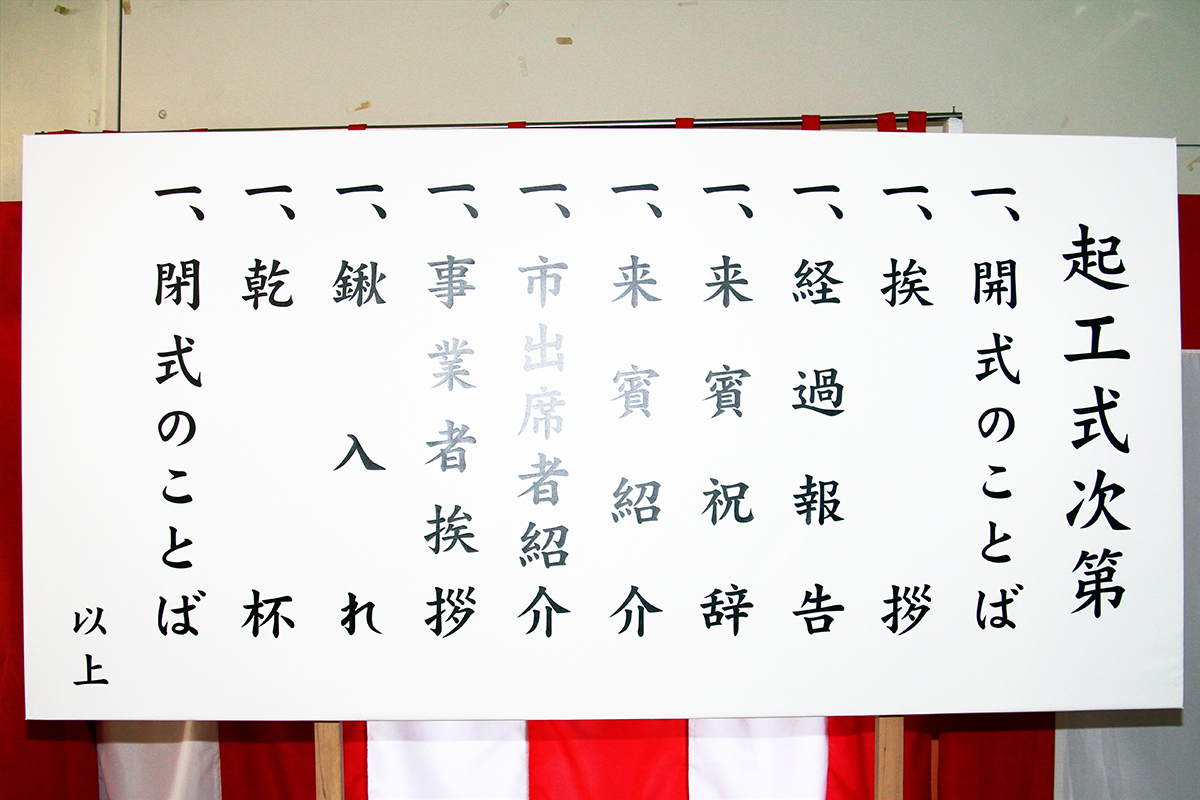 起工式次第
一、開式のことば
一、挨拶
一、経過報告
一、来賓祝辞
一、来賓紹介
一、市出席者紹介
一、事業者挨拶
一、鍬入れ
一、乾杯
一、閉式のことば
以上